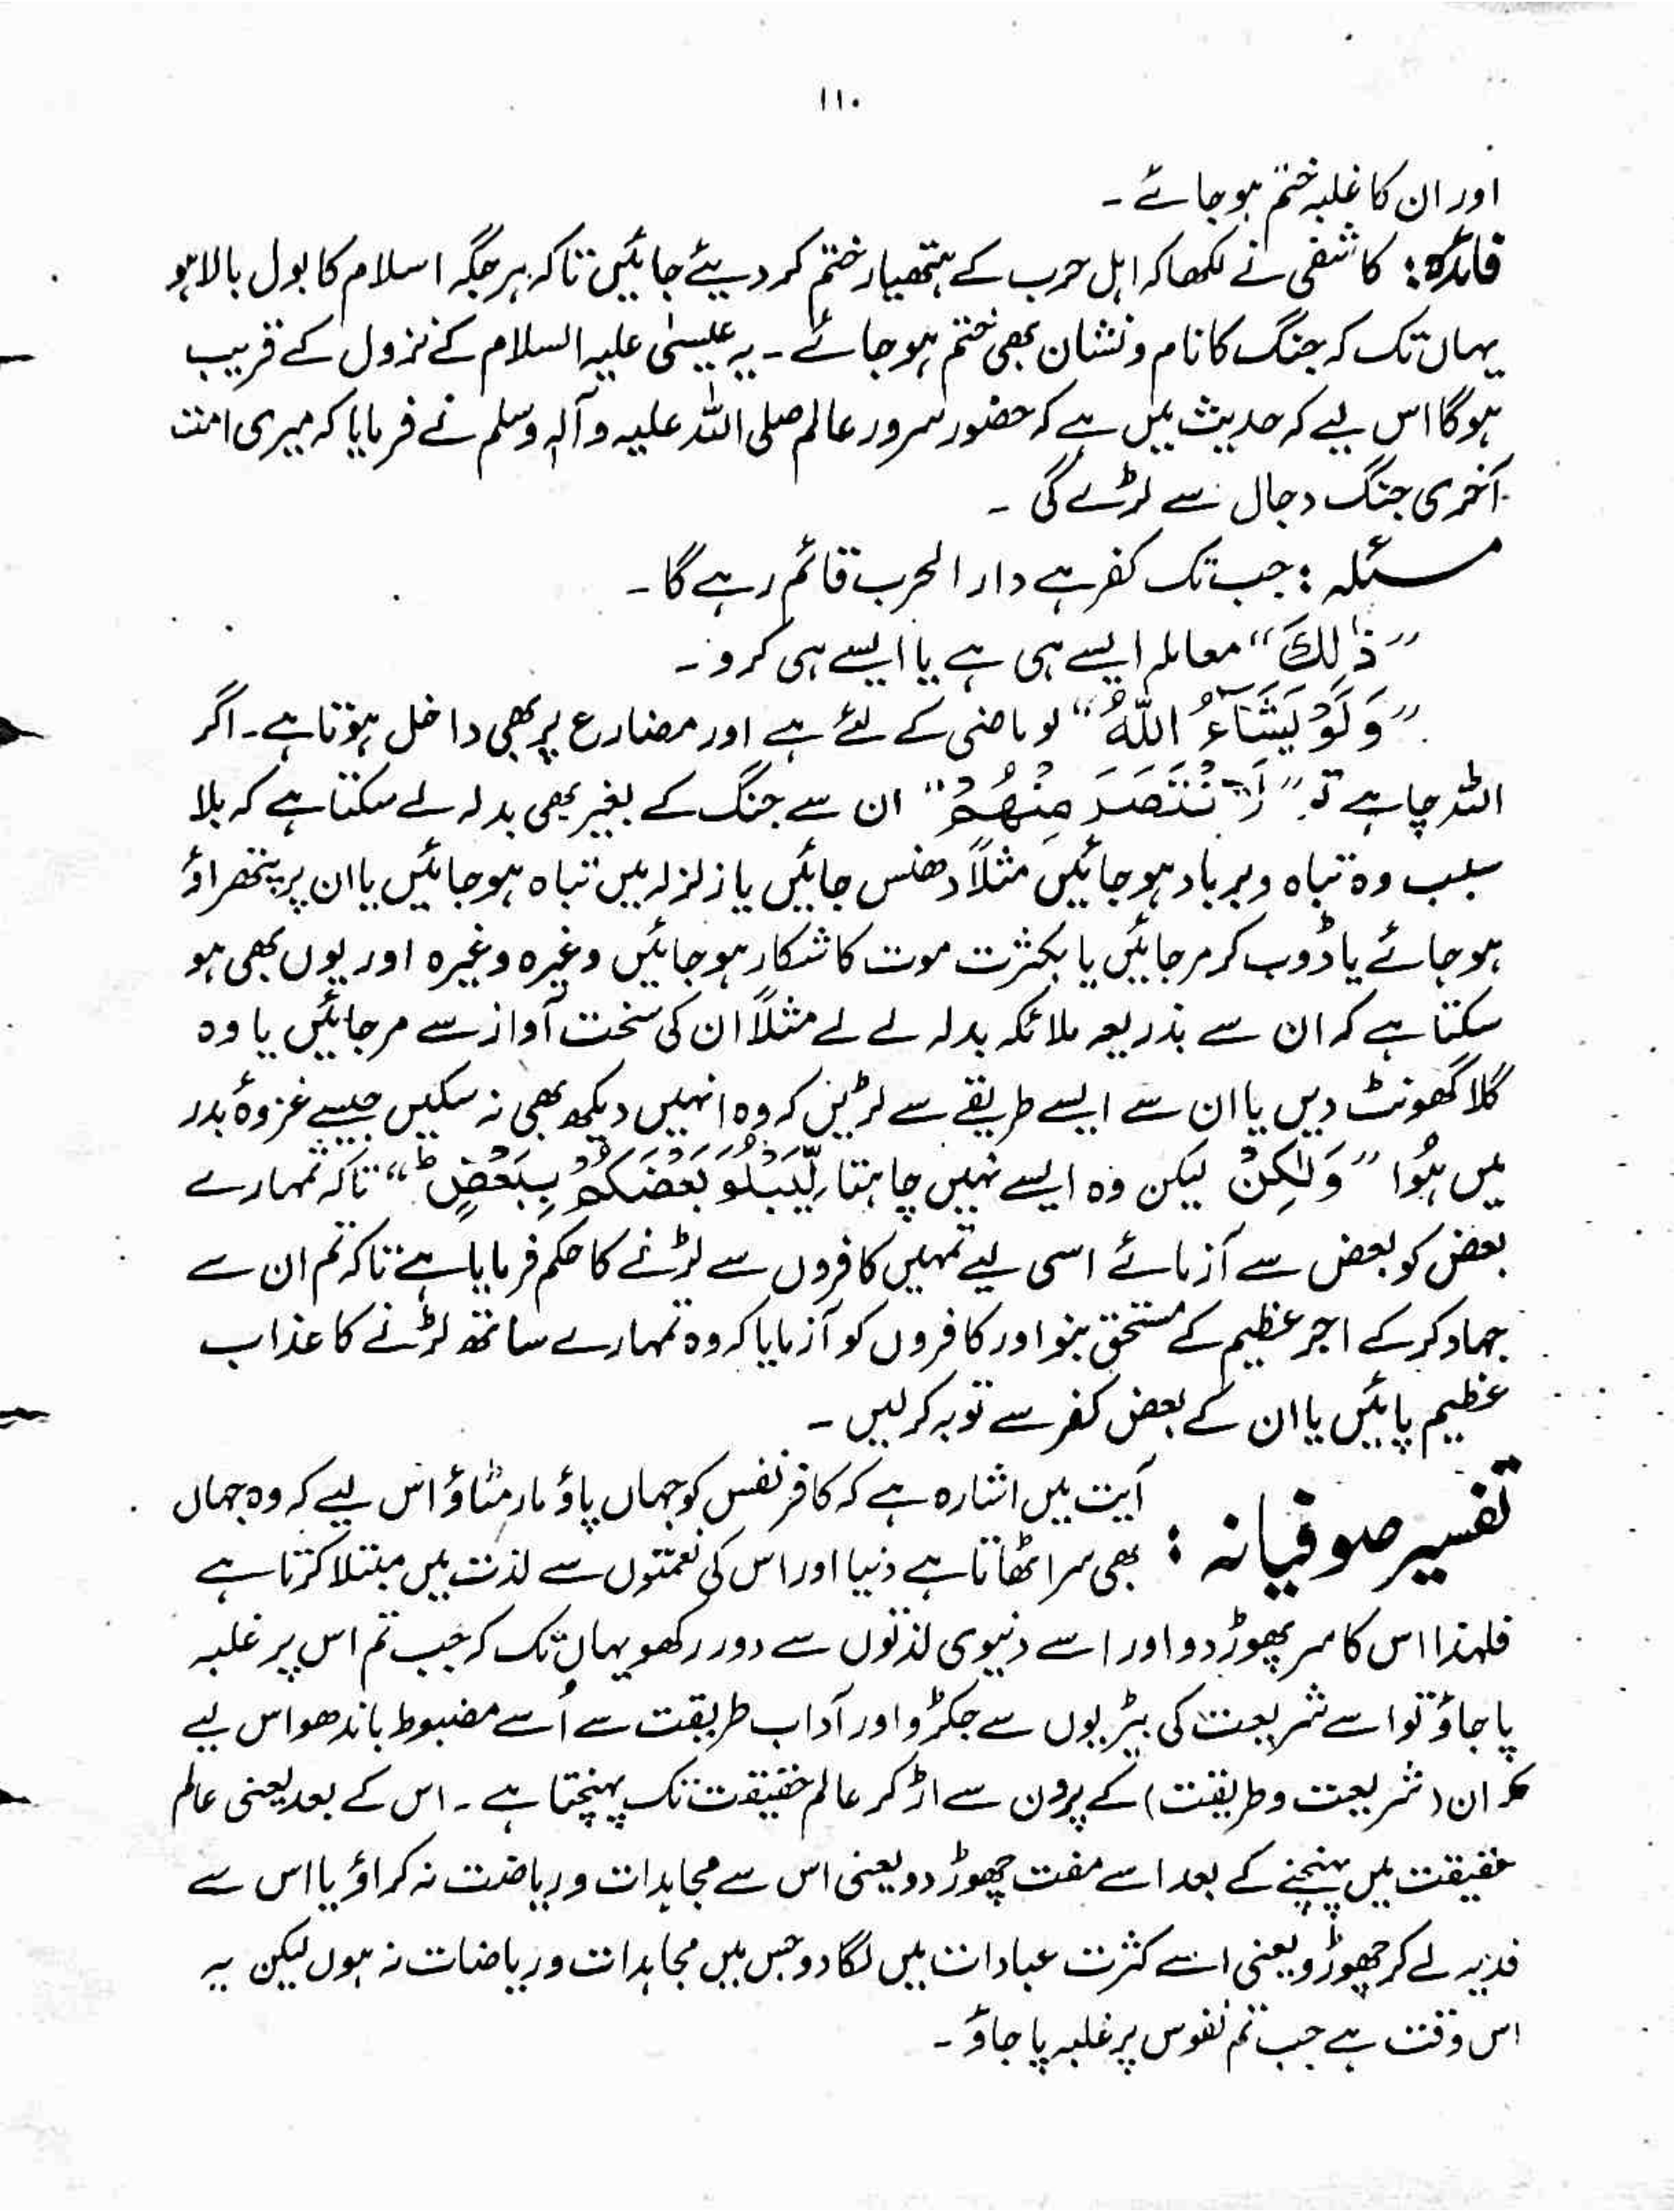 ۱۱۰
اور ان کا غلبہ ختم ہو جائے ۔
فائدہ: کاشفی نے لکھا کہ اہل حرب کے ہتھیار ختم کر دیئے جائیں تاکہ ہر جگہ اسلام کا بول بالا ہو
یہاں تک کہ جنگ کا نام و نشان بھی ختم ہو جائے ۔ یہ عیسیٰ علیہ السلام کے نزول کے قریب
ہوگا اس لیے کہ حدیث میں ہے کہ حضور سرور عالم صلی اللہ علیہ وآلہٖ وسلم نے فرمایا کہ میری امت
آخری جنگ دجال سے لڑے گی ۔
مسئلہ : جب تک کفر ہے دار الحرب قائم رہے گا ۔
”ذٰلِكَ“ معاملہ ایسے ہی ہے یا ایسے ہی کرو ۔
”وَلَوْ يَشَآءُ اللّٰهُ“ لو ماضی کے لئے ہے اور مضارع پر بھی داخل ہوتا ہے ۔ اگر
اللہ چاہے تو ”لَانْتَصَرَ مِنْهُمْ“ ان سے جنگ کے بغیر بھی بدلہ لے سکتا ہے کہ بلا
سبب وہ تباہ و برباد ہو جائیں مثلاً دھنس جائیں یا زلزلہ میں تباہ ہو جائیں یا ان پر پتھراؤ
ہو جائے یا ڈوب کر مر جائیں یا بکثرت موت کا شکار ہو جائیں وغیرہ وغیرہ اور یوں بھی ہو
سکتا ہے کہ ان سے بذریعہ ملائکہ بدلہ لے لے مثلاً ان کی سخت آواز سے مر جائیں یا وہ
گلا گھونٹ دیں یا ان سے ایسے طریقے سے لڑیں کہ وہ انہیں دیکھ بھی نہ سکیں جیسے غزوۂ بدر
میں ہُوا ”وَلٰكِنْ لیکن وہ ایسے نہیں چاہتا لِّيَبْلُوَ بَعْضَكُمْ بِبَعْضٍ ؕ“ تاکہ تمہارے
بعض کو بعض سے آزمائے اسی لیے تمہیں کافروں سے لڑنے کا حکم فرمایا ہے تاکہ تم ان سے
جہاد کرکے اجر عظیم کے مستحق بنو اور کافروں کو آزمایا کہ وہ تمہارے ساتھ لڑنے کا عذاب
عظیم پائیں یا ان کے بعض کفر سے توبہ کر لیں ۔
تفسیر صوفیانہ : آیت میں اشارہ ہے کہ کافر نفس کو جہاں پاؤ مار مٹاؤ اس لیے کہ وہ جہاں
بھی سر اٹھاتا ہے دنیا اور اس کی نعمتوں سے لذت میں مبتلا کرتا ہے
فلہٰذا اس کا سر پھوڑ دو اور اسے دنیوی لذتوں سے دور رکھو یہاں تک کہ جب تم اس پر غلبہ
پا جاؤ تو اسے شریعت کی بیڑیوں سے جکڑو اور آداب طریقت سے اُسے مضبوط باندھو اس لیے
کہ ان (شریعت و طریقت) کے پروں سے اڑ کر عالم حقیقت تک پہنچتا ہے ۔ اس کے بعد یعنی عالم
حقیقت میں پہنچنے کے بعد اسے مفت چھوڑ دو یعنی اس سے مجاہدات و ریاضت نہ کراؤ یا اس سے
فدیہ لے کر چھوڑو یعنی اسے کثرت عبادات میں لگا دو جس میں مجاہدات و ریاضات نہ ہوں لیکن یہ
اس وقت ہے جب تم نفوس پر غلبہ پا جاؤ ۔